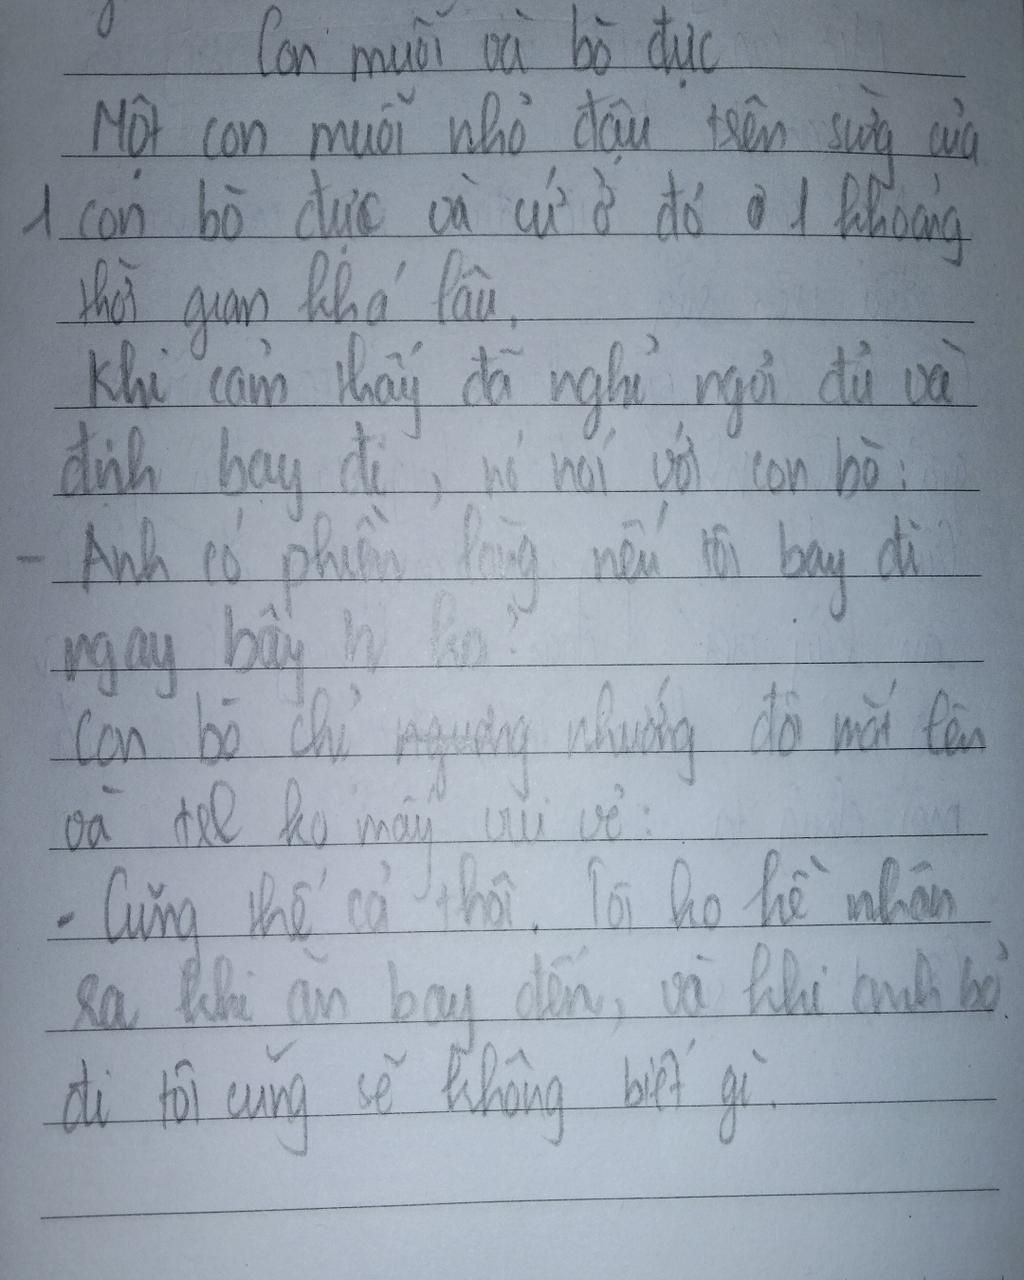 Con muỗi và bò đực
Một con muỗi nhỏ đậu trên sừng của
1 con bò đực và cứ ở đó ở 1 khoảng
thời gian khá lâu.
Khi cảm thấy đã nghỉ ngơi đủ và
định bay đi, nó nói với con bò:
- Anh có phiền lòng nếu tôi bay đi
ngay bây h ko?
Con bò chỉ ngương nhướng đôi mắt lên
và trl ko mấy vui vẻ:
- Cũng thế cả thôi. Tôi ko hề nhận
ra khi ăn bay đến, và khi anh bỏ
đi tôi cũng sẽ không biết gì.